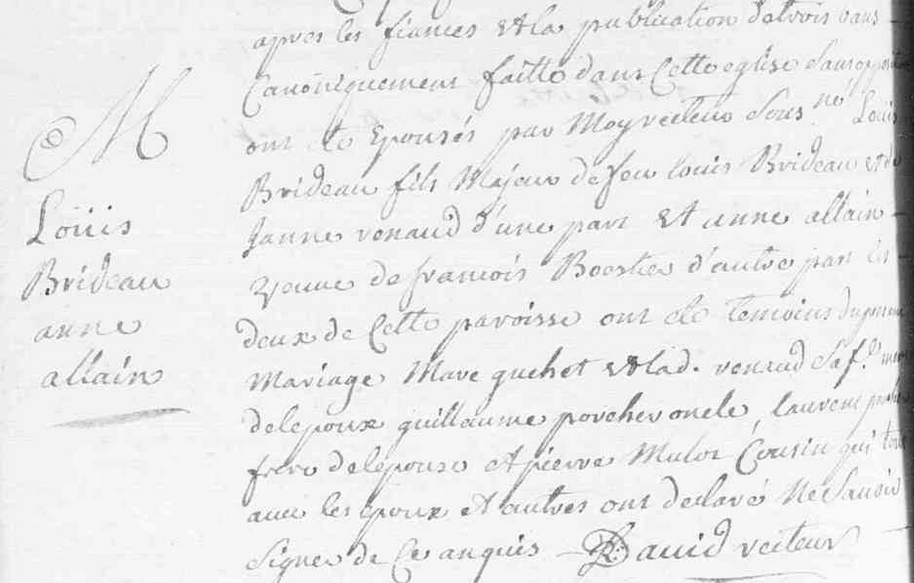 M
Loüis
Brideau
anne
allain
apres les fiances et la publication de trois bans
Canoniquement faitte dans Cette eglise sans opposition
ont été Epousés par Moy recteur sous.né Louis
Brideau fils Majeur de feu louis Brideau et de
Janne renaud d'une part et anne allain
veuve de francois d'autre part les
deux de Cette paroisse ont été temoins du present
Mariage Marc guehet et lad. renaud sa f.e mere
de lepoux guillaume porcher oncle, laurent
frere de lepouse et pierre Mulot Cousin qui tous
avec les Epoux et autres ont declaré Ne Savoir
Signer de Ce anquis David recteur